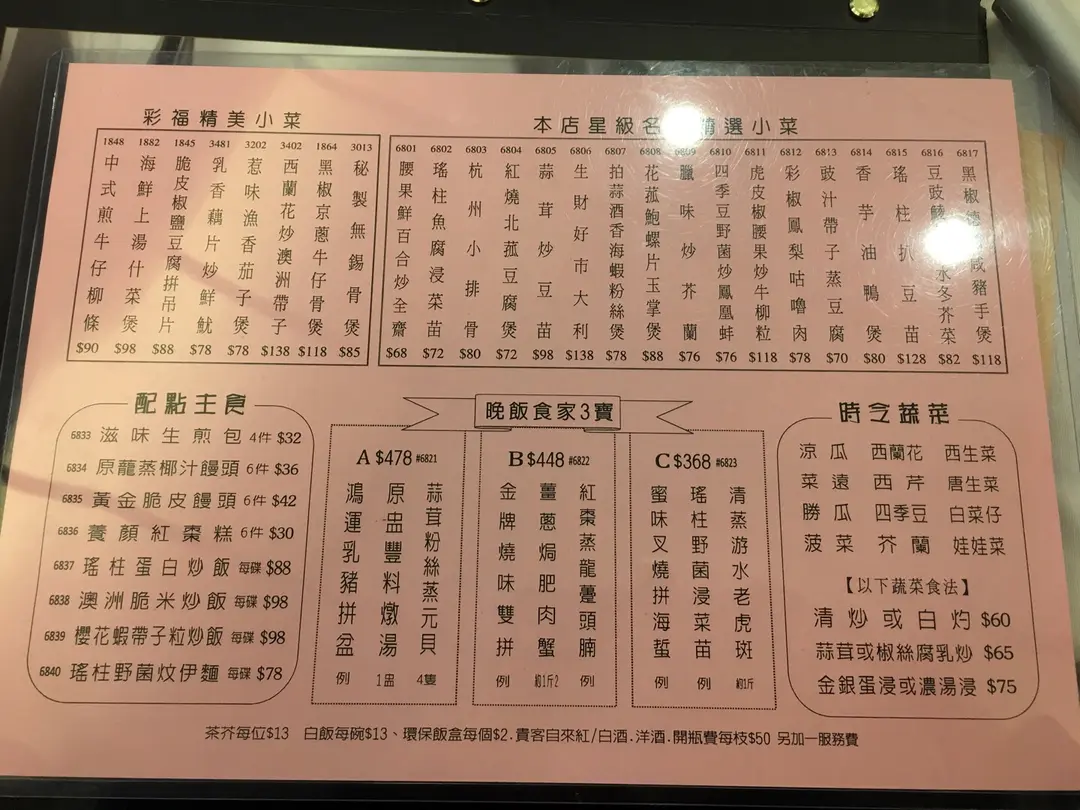 彩福精美小菜
1848 中式煎牛仔柳條 $90
1882 海鮮上湯什菜煲 $98
1845 脆皮椒鹽豆腐拼吊片 $88
3481 乳香藕片炒鮮魷 $78
3202 惹味漁香茄子煲 $78
3402 西蘭花炒澳洲帶子 $138
1864 黑椒京蔥牛仔骨煲 $118
3013 秘製無錫骨煲 $85
本店星級名 精選小菜
6801 腰果鮮百合炒全齋 $68
6802 瑤柱魚腐浸菜苗 $72
6803 杭州小排骨 $80
6804 紅燒北菰豆腐煲 $72
6805 蒜茸炒豆苗 $98
6806 生財好市大利 $138
6807 拍蒜酒香海蝦粉絲煲 $78
6808 花菰鮑螺片玉掌煲 $88
6809 臘味炒芥蘭 $76
6810 四季豆野菌炒鳳凰蚌 $76
6811 虎皮椒腰果炒牛柳粒 $118
6812 彩椒鳳梨咕嚕肉 $78
6813 豉汁帶子蒸豆腐 $70
6814 香芋油鴨煲 $80
6815 瑤柱扒豆苗 $128
6816 豆豉鯪 水冬芥菜 $82
6817 黑椒德 咸豬手煲 $118
配點主食
6833 滋味生煎包 4件 $32
6834 原籠蒸椰汁饅頭 6件 $36
6835 黃金脆皮饅頭 6件 $42
6836 養顏紅棗糕 6件 $30
6837 瑤柱蛋白炒飯 每碟 $88
6838 澳洲脆米炒飯 每碟 $98
6839 櫻花蝦帶子粒炒飯 每碟 $98
6840 瑤柱野菌炆伊麵 每碟 $78
晚飯食家3寶
A $478 #6821
蒜茸粉絲蒸元貝 4隻
原盅豐料燉湯 1盅
鴻運乳豬拼盆 例
B $448 #6822
紅棗蒸龍躉頭腩 例
薑蔥焗肥肉蟹 約1斤2
金牌燒味雙拼 例
C $368 #6823
清蒸游水老虎斑 約1斤
瑤柱野菌浸菜苗 例
蜜味叉燒拼海蜇 例
時令蔬菜
涼瓜 西蘭花 西生菜
菜遠 西芹 唐生菜
勝瓜 四季豆 白菜仔
菠菜 芥蘭 娃娃菜
【以下蔬菜食法】
清炒或白灼 $60
蒜茸或椒絲腐乳炒 $65
金銀蛋浸或濃湯浸 $75
茶芥每位$13 白飯每碗$13、環保飯盒每個$2.貴客自來紅/白酒.洋酒.開瓶費每枝$50 另加一服務費